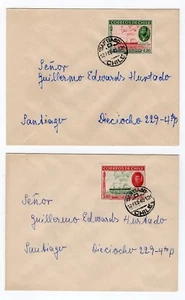 CORREOS DE CHILE
Señor
Guillermo Edwards Hurtado
Santiago Dieciocho 229-4ºp
CORREOS DE CHILE
CHILE
Señor
Guillermo Edwards Hurtado
Santiago Dieciocho 229-4ºp